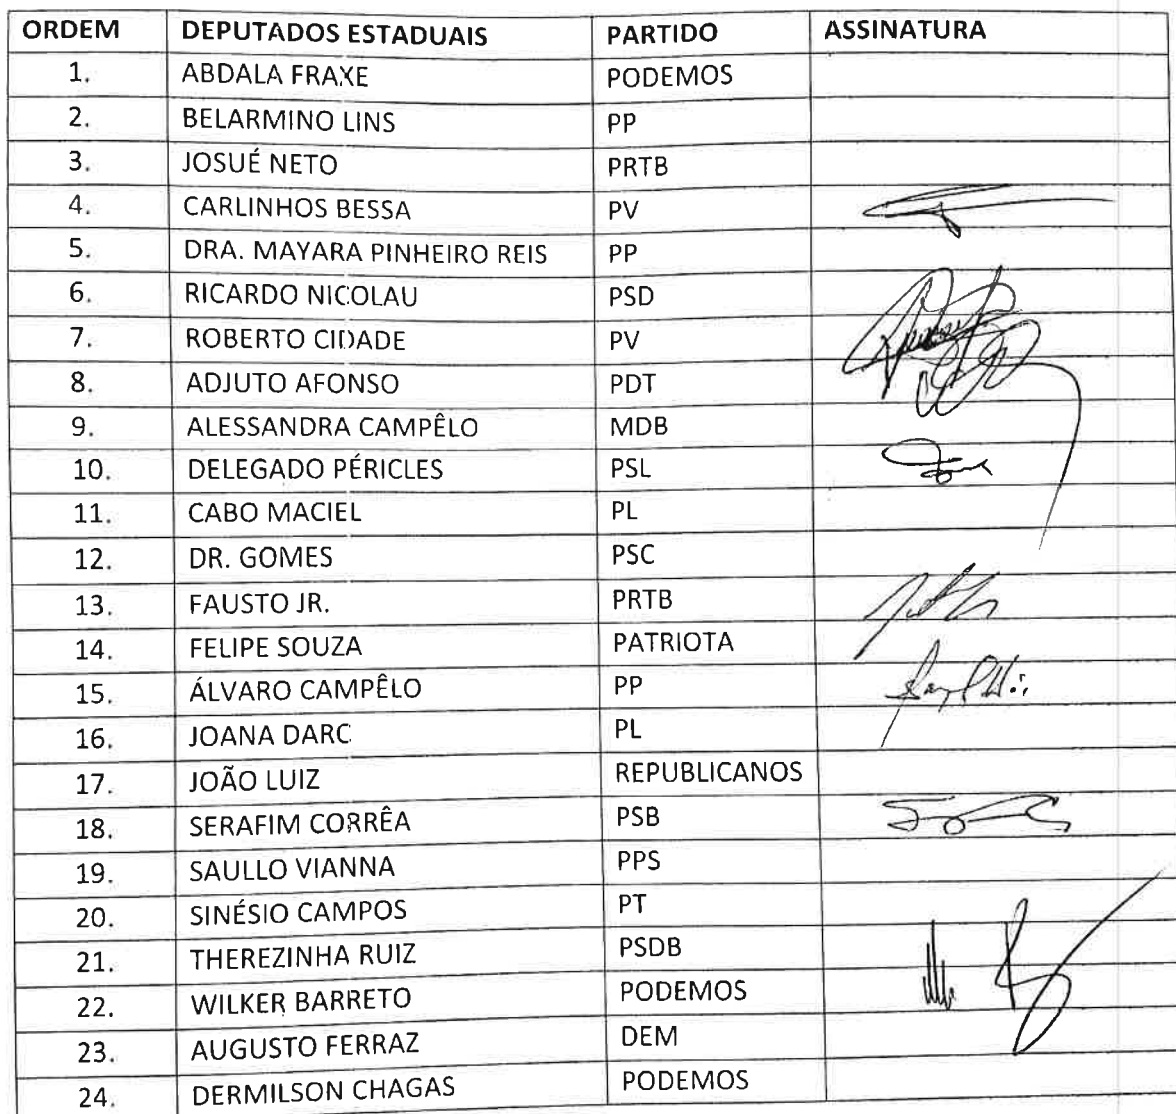 ORDEM DEPUTADOS ESTADUAIS PARTIDO ASSINATURA
1. ABDALA FRAXE PODEMOS
2. BELARMINO LINS PP
3. JOSUÉ NETO PRTB
4. CARLINHOS BESSA PV
5. DRA. MAYARA PINHEIRO REIS PP
6. RICARDO NICOLAU PSD
7. ROBERTO CIDADE PV
8. ADJUTO AFONSO PDT
9. ALESSANDRA CAMPÊLO MDB
10. DELEGADO PÉRICLES PSL
11. CABO MACIEL PL
12. DR. GOMES PSC
13. FAUSTO JR. PRTB
14. FELIPE SOUZA PATRIOTA
15. ÁLVARO CAMPÊLO PP
16. JOANA DARC PL
17. JOÃO LUIZ REPUBLICANOS
18. SERAFIM CORRÊA PSB
19. SAULLO VIANNA PPS
20. SINÉSIO CAMPOS PT
21. THEREZINHA RUIZ PSDB
22. WILKER BARRETO PODEMOS
23. AUGUSTO FERRAZ DEM
24. DERMILSON CHAGAS PODEMOS